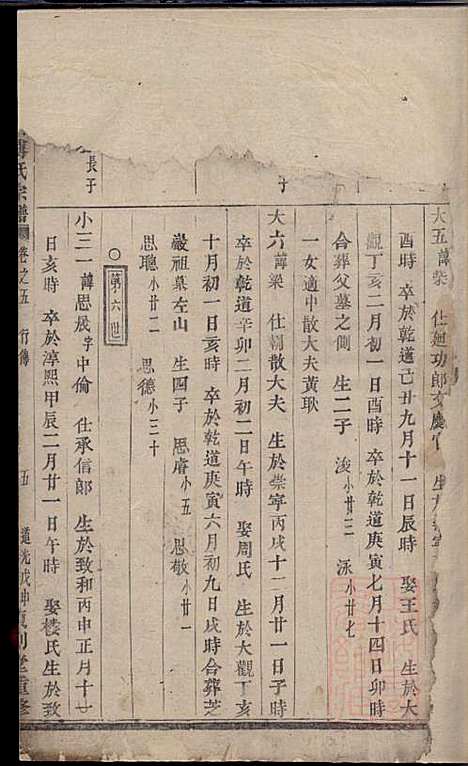 大五諱榮 仕廸功郎
酉時 卒於乾道己丑九月十一日辰時 娶王氏 生於大
觀丁亥二月初一日酉時 卒於乾道庚寅七月十四日卯時
合葬父墓之側 生二子 浚小廿三 泳小廿七
一女適中散大夫黃耿
子
大六諱梁 仕朝散大夫 生於崇寧丙戌十二月廿一日子時
卒於乾道辛卯二月初二日午時 娶周氏 生於大觀丁亥
十月初一日亥時 卒於乾道庚寅六月初九日戌時合葬芝
巖祖墓左山 生四子 思睿小五 思敬小廿一
思聰小廿二 思德小三十
第六世
長子
小三一諱思 字中倫 仕承信郎 生於致和丙申正月十一
日亥時 卒於淳熙甲辰二月廿一日午時 娶樓氏生於致
氏宗譜 卷之五 行傳 五 道光戊申 重修